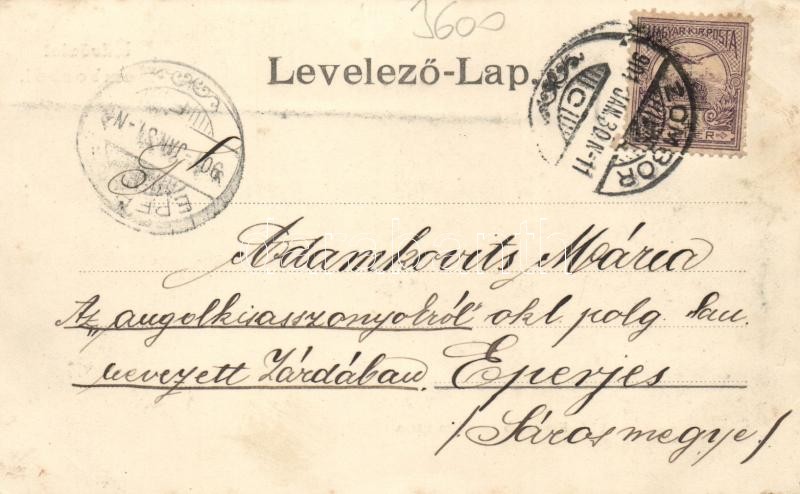 3600
Levelező-Lap.
MAGYAR KIR. POSTA
ZOMBOR
901 JAN. 30. N-11
EPE
Adamkovits Mária
Az „angolkisasszonyokról" okl. polg. tan.
nevezett Zárdában. Eperjes
/Sárosmegye/